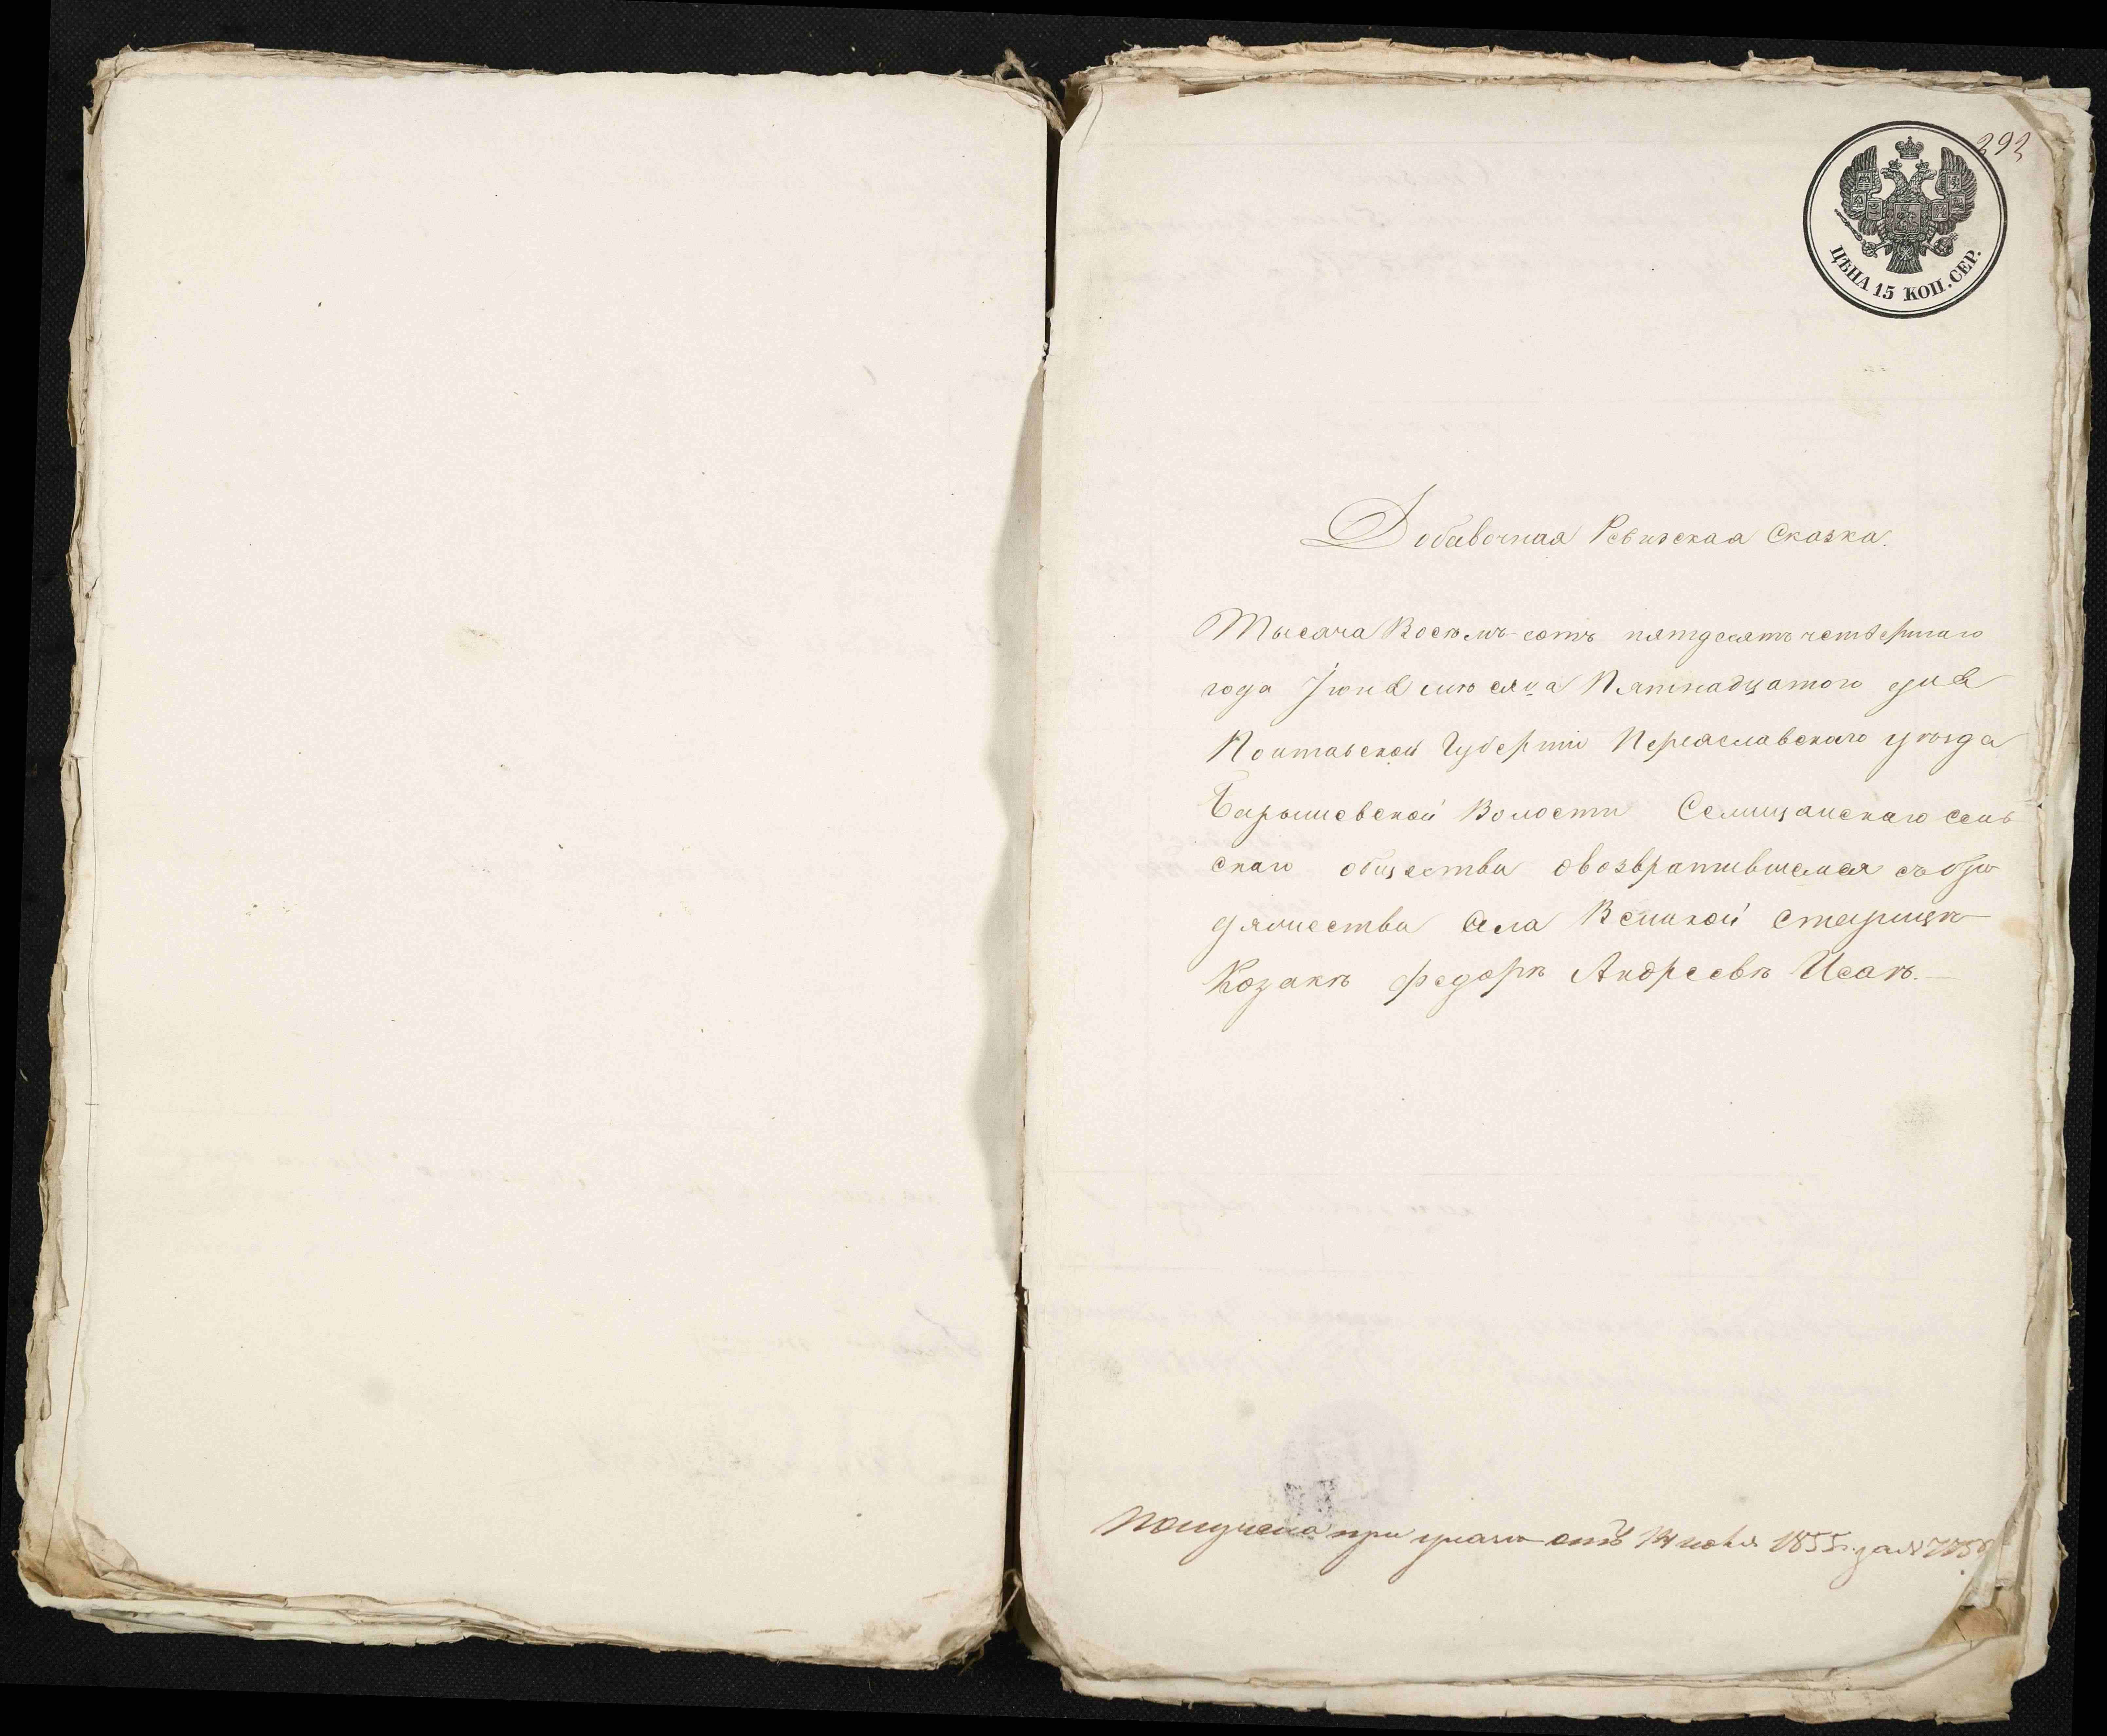 292
ЦѢНА 15 КОП. СЕР.
Добавочная Ревизская Сказка.
Тысяча Восемъ-сотъ пятдесятъ четвертаго
года Іюня мѣсяца Пятнадцатого дня
Полтавской Губерніи Переяславскаго уѣзда
Барышевской Волости Селищанскаго сель
скаго общества овозвратившемся съ бро
дяжества Села Великой Старицѣ
Козакѣ Федорѣ Андреевѣ Исаѣ.
Получена при указѣ отъ 14 1855 г. за №